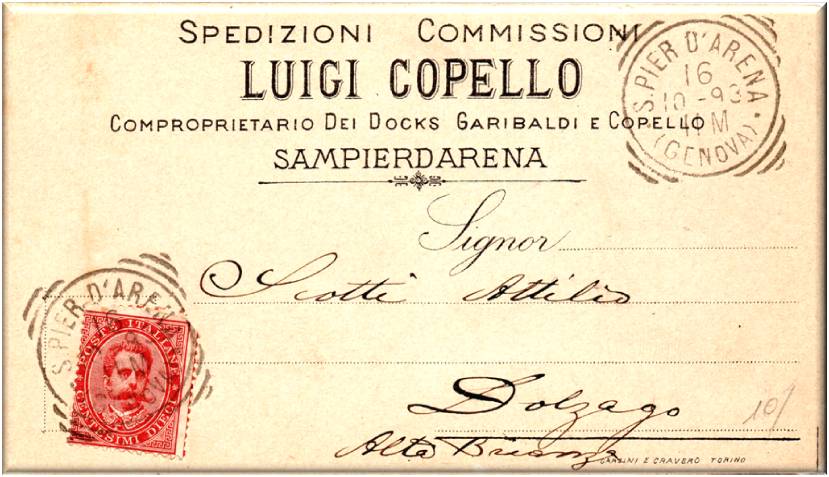 SPEDIZIONI COMMISSIONI
LUIGI COPELLO
COMPROPRIETARIO DEI DOCKS GARIBALDI E COPELLO
SAMPIERDARENA
S. PIER D'ARENA
16
10-93
11 M
(GENOVA)
Signor
Scotti Attilio
S. PIER D'ARENA
POSTE ITALIANE
CENTESIMI DIECI
Dolzago
10/
Alta Brianza
GARZINI E CRAVERO TORINO